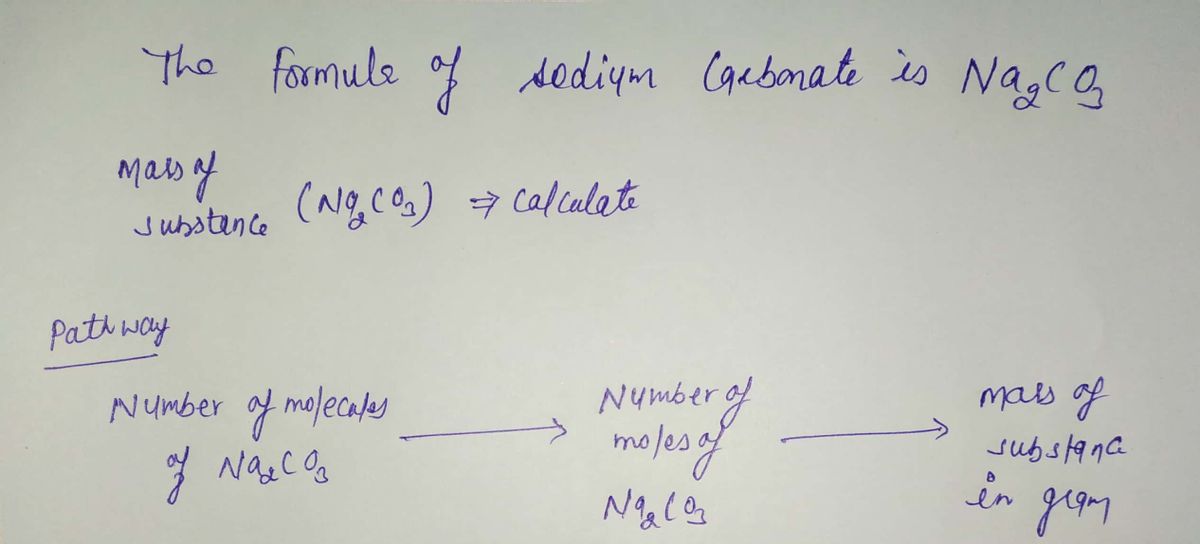 The formula of sodium Carbonate is Na₂CO₃
Mass of
substance (Na₂CO₃) ⇒ calculate
Pathway
Number of molecules of Na₂CO₃ → Number of moles of Na₂CO₃ → mass of substance in gram